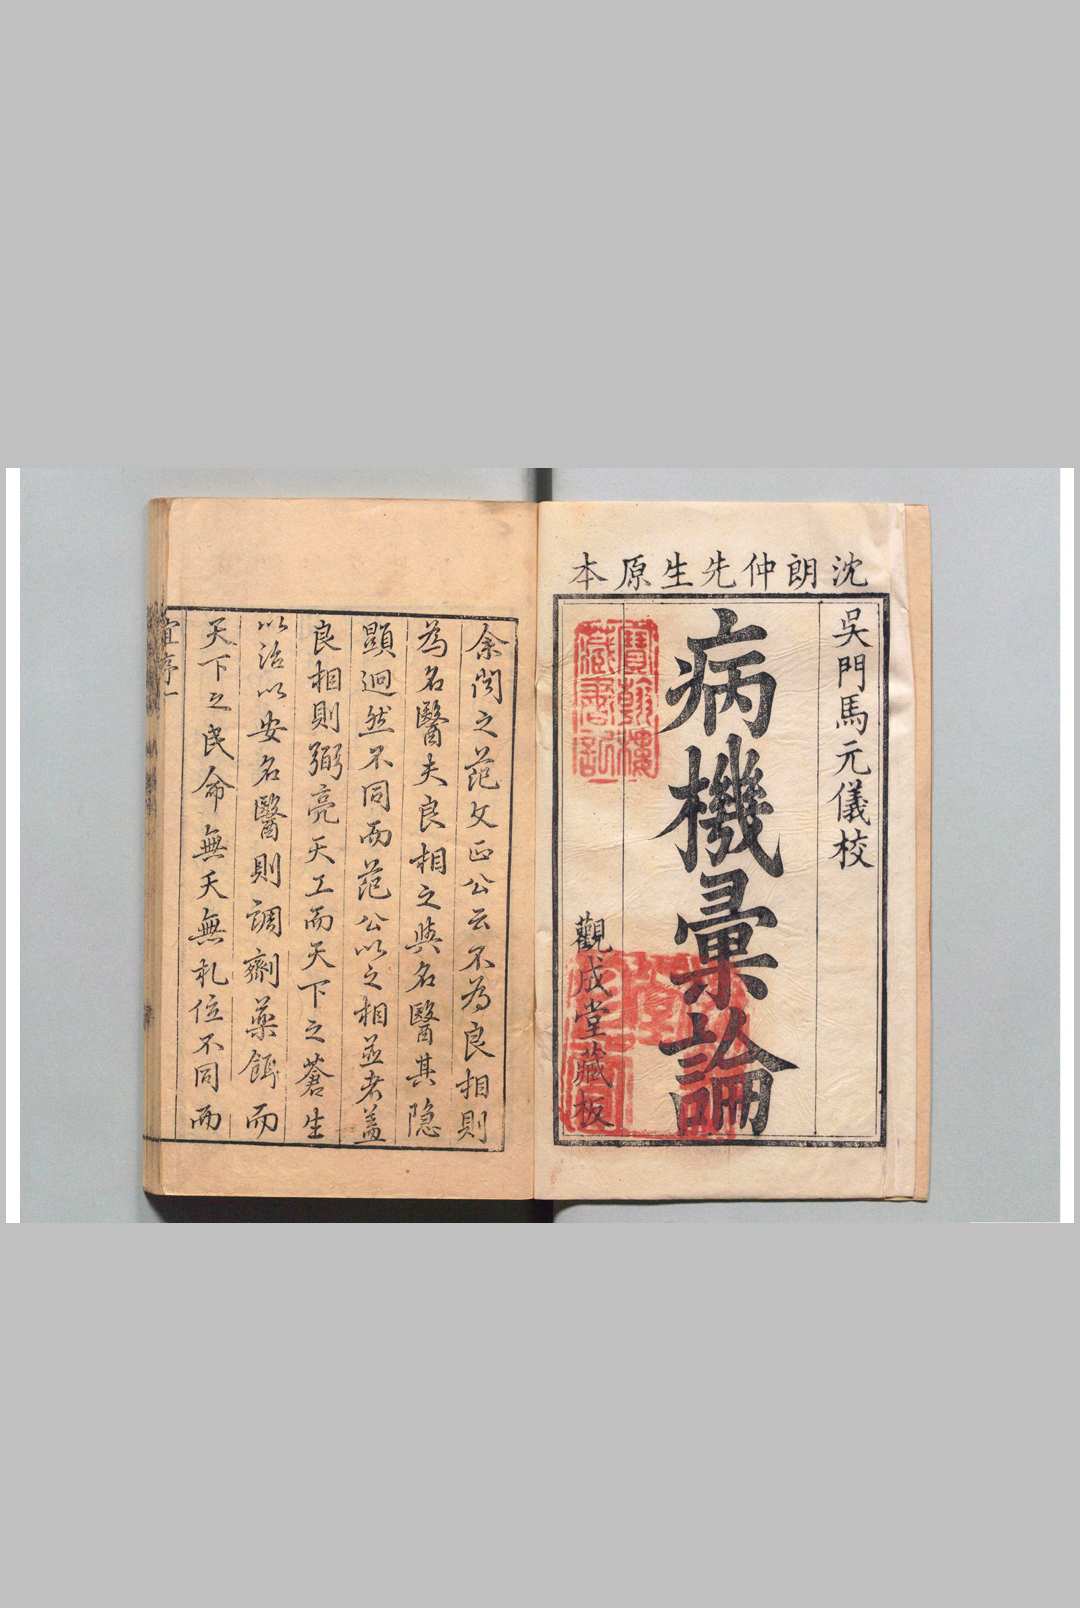 沈朗仲先生原本
吳門馬元儀校
病機彙論
觀成堂藏板
寶翰樓
藏書記
余閱之范文正公云不為良相則
為名醫夫良相之與名醫其隐
顯迥然不同而范公以之相並者蓋
良相則弼亮天工而天下之蒼生
以治以安名醫則調劑藥餌而
天下之民命無夭無札位不同而
宜序一